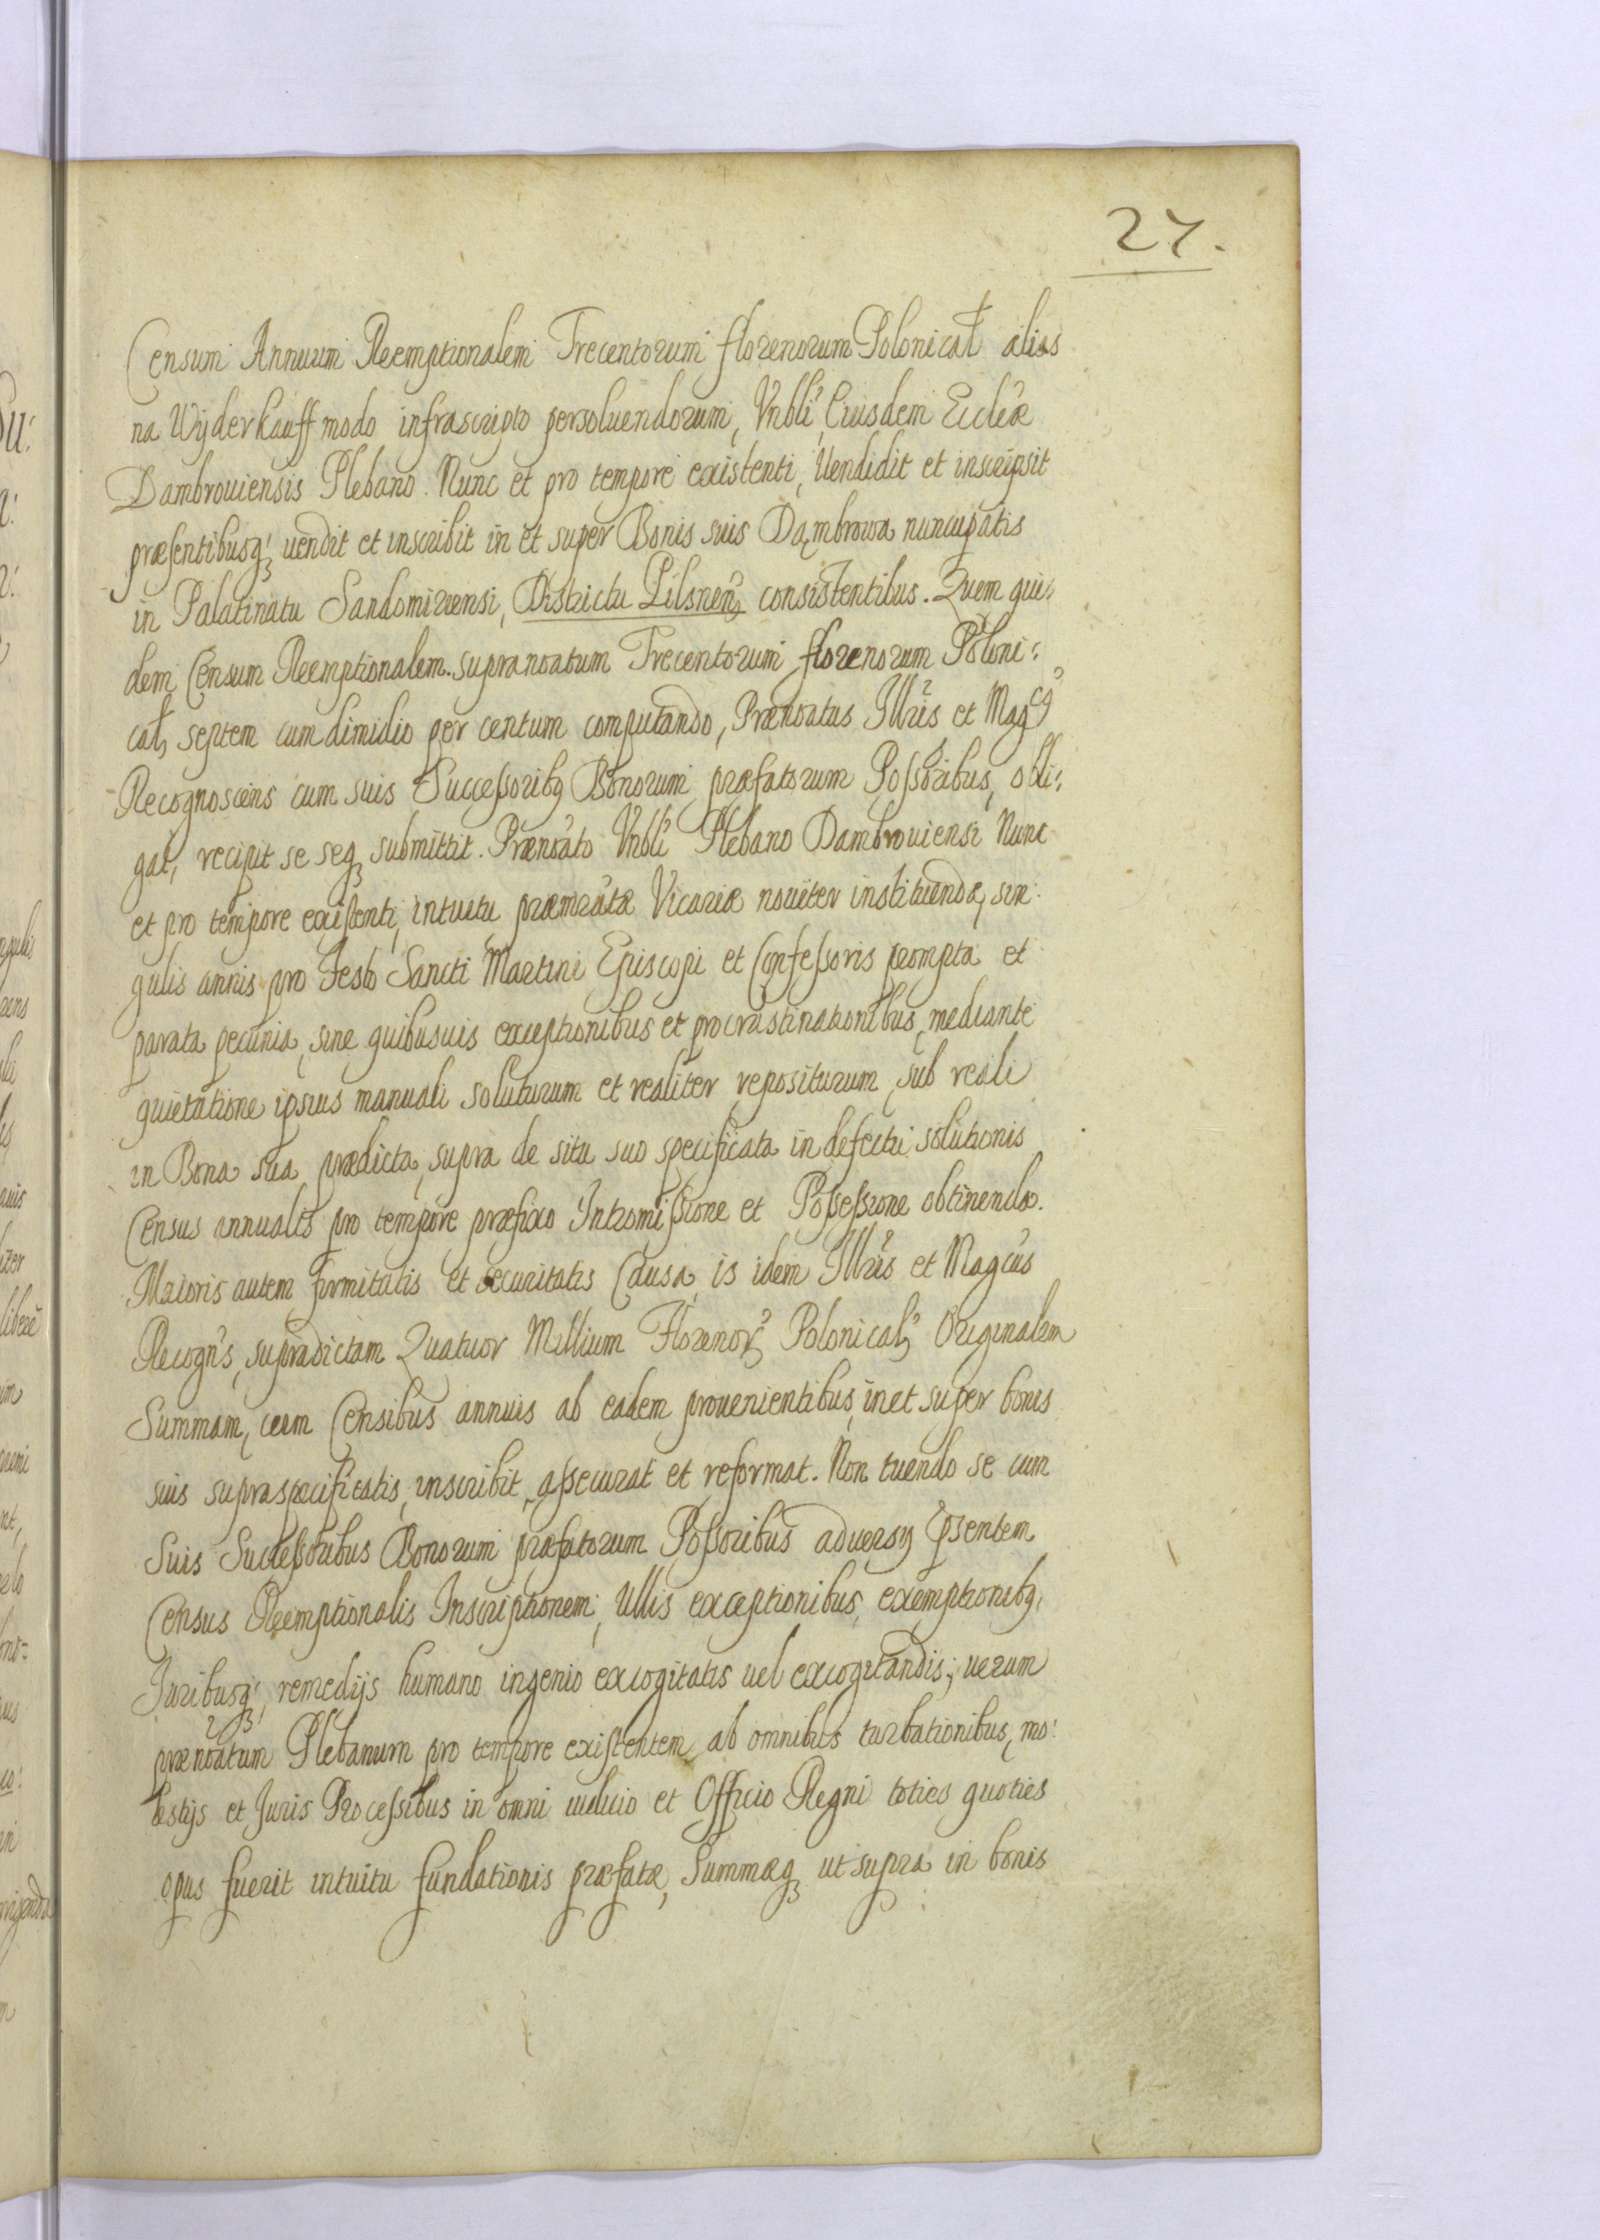 27.
Censum Annuum Reemptionalem Trecentorum florenorum Polonical alias
na Wyderkauff modo infrascripto persoluendorum, Vnbli, Eiusdem Eccleæ
Dambrouiensis Plebano. Nunc et pro tempore existenti, Vendidit et inscripsit
præsentibusq; uendit et inscribit in et super Bonis suis Dąmbrowa nuncupatis
in Palatinatu Sandomiriensi, Districtu Pilsnen consistentibus. Quem qui:
dem Censum Reemptionalem supranoatum Trecentorum florenorum Poloni:
cal, septem cum dimidio per centum computando, Prænoatus Illris et Magcus
Recognoscens cum suis Successoribq Bonorum præfatorum Possoribus, obli:
gat, recipit se seq; submittit. Prænoato Vnbli Plebano Dambrouiensi Nunc
et pro tempore existenti, intuitu præmratæ Vicariæ nouiter instituendæ, sin:
gulis annis pro Festo Sancti Martini Episcopi et Confessoris prompta et
parata pecunia, sine quibusuis exceptionibus et procrastinationibus, mediante
quietatione ipsius manuali soluturum et realiter repositurum, sub reali
in Bona sua prædicta, supra de situ suo specificata in defectu solutionis
Census annualis pro tempore præfixo Intromissione et Possessione obtinenda.
Maioris autem firmitatis et securitatis Causa, is idem Illris et Magcus
Recogns, supradictam Quatuor Millium Florenor Polonical Originalem
Summam, cum Censibus annuis ab eadem prouenientibus, in et super bonis
suis supraspecificatis, inscribit, assecurat et reformat. Non tuendo se cum
Suis Successoribus Bonorum præfatorum Possoribus aduersq psentem
Census Reemptionalis Inscriptionem, Ullis exceptionibus, exemptionibq,
Juribusq; remedijs humano ingenio excogitatis uel excogitandis; uerum
prænoatum Plebanum pro tempore existentem ab omnibus turbationibus, mo:
lestijs et Juris Processibus in omni iudicio et Officio Regni toties quoties
opus fuerit intuitu fundationis præfatæ, Summæq; ut supra in bonis